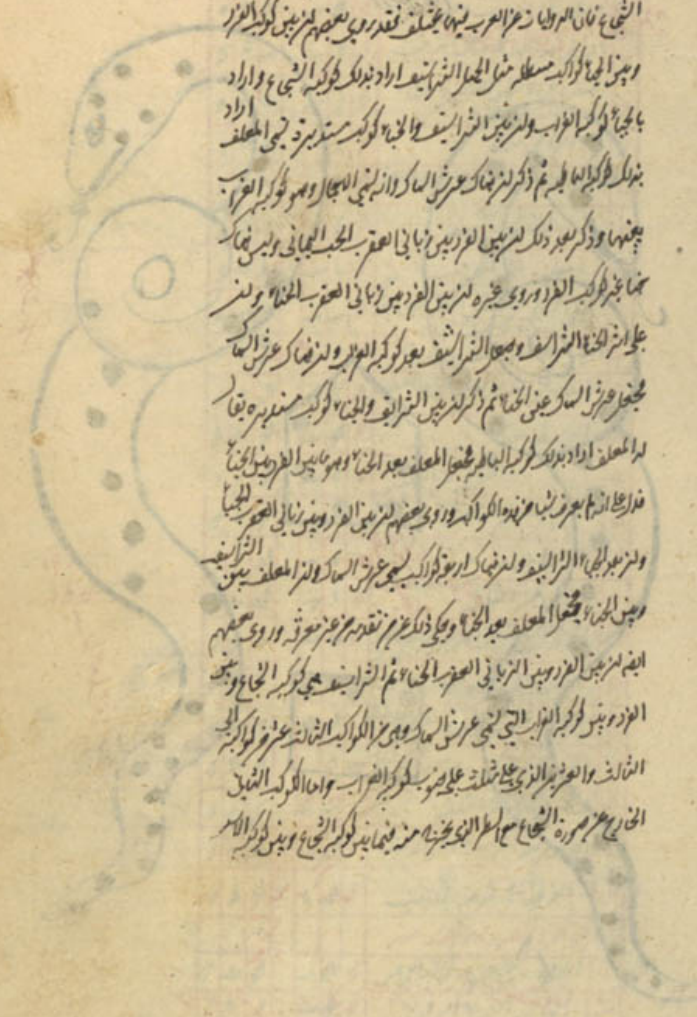 الشجاع فان الروايات عن العرب فيها مختلف فقد روى بعضهم ان بين كوكب الفرد
وبين الخباء كواكب مستطيله مثل الحبل الشراسيف اراد بذلك كوكبه الشجاع واراد
بالخباء كوكبه الغراب وان بين الشراسيف والخباء كوكب مستديرة تسمى المعلف اراد
بذلك كوكبه الباطيه ثم ذكر ان هناك عرش السماك وانه يسمى الاحمال وهو كوكبه الغراب
بعينها وذكر بعد ذلك ان بين الفرد وبين زباني العقرب الخبا اليماني وليس هناك
خبا غير كوكب الفرد وروى غيره ان بين الفرد وبين زباني العقرب الخباء وان
على اثر الخباء الشراسيف وجعل الشراسيف بعد كوكبه الغراب وان هناك عرش السماك
فجعل عرش السماك غير الخباء ثم ذكر ان بين الشراسيف والخباء كوكب مستديره يقال
له المعلف اراد بذلك كوكبه الباطيه فجعل المعلف بعد الخباء وهو ما بين الفرد وبين الخباء
فدل على انه لم يعرف شيا من هذه الكواكب وروى بعضهم ان بين الفرد وبين زباني العقرب الخباء
وان بعد الخباء الشراسيف وان هناك اربعة كواكب يسمى عرش السماك وان المعلف بين الشراسيف
وبين الخباء فجعل المعلف بعد الخباء وحكى ذلك عن من تقدمه من غير معرفة وروى بعضهم
ايضا ان بين الفرد وبين الزباني العقرب الخباء ثم الشراسيف هي كوكبه الشجاع وبين
الفرد وبين كوكبه الغراب التي تسمى عرش السماك وهي من الكواكب الثالث عشر من كواكبه الى
الثالث والعشرين الذي على مثلث على جنوب كوكبه الغراب واما الكوكب الثاني
الخارج عن صورة الشجاع مع السطر الذي يخرنه منه فيما بين كوكبه الشجاع وبين كوكبه الاسد